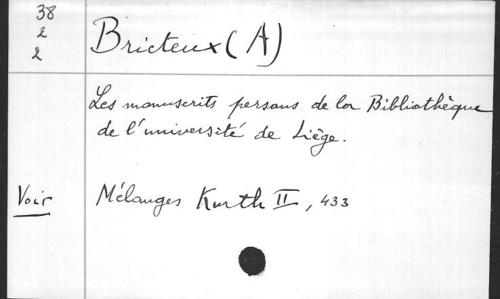 38
2
2
Bricteux (A)
Les manuscrits persans de la Bibliothèque
de l'université de Liège.
Voir
Mélanges Kurth II, 433